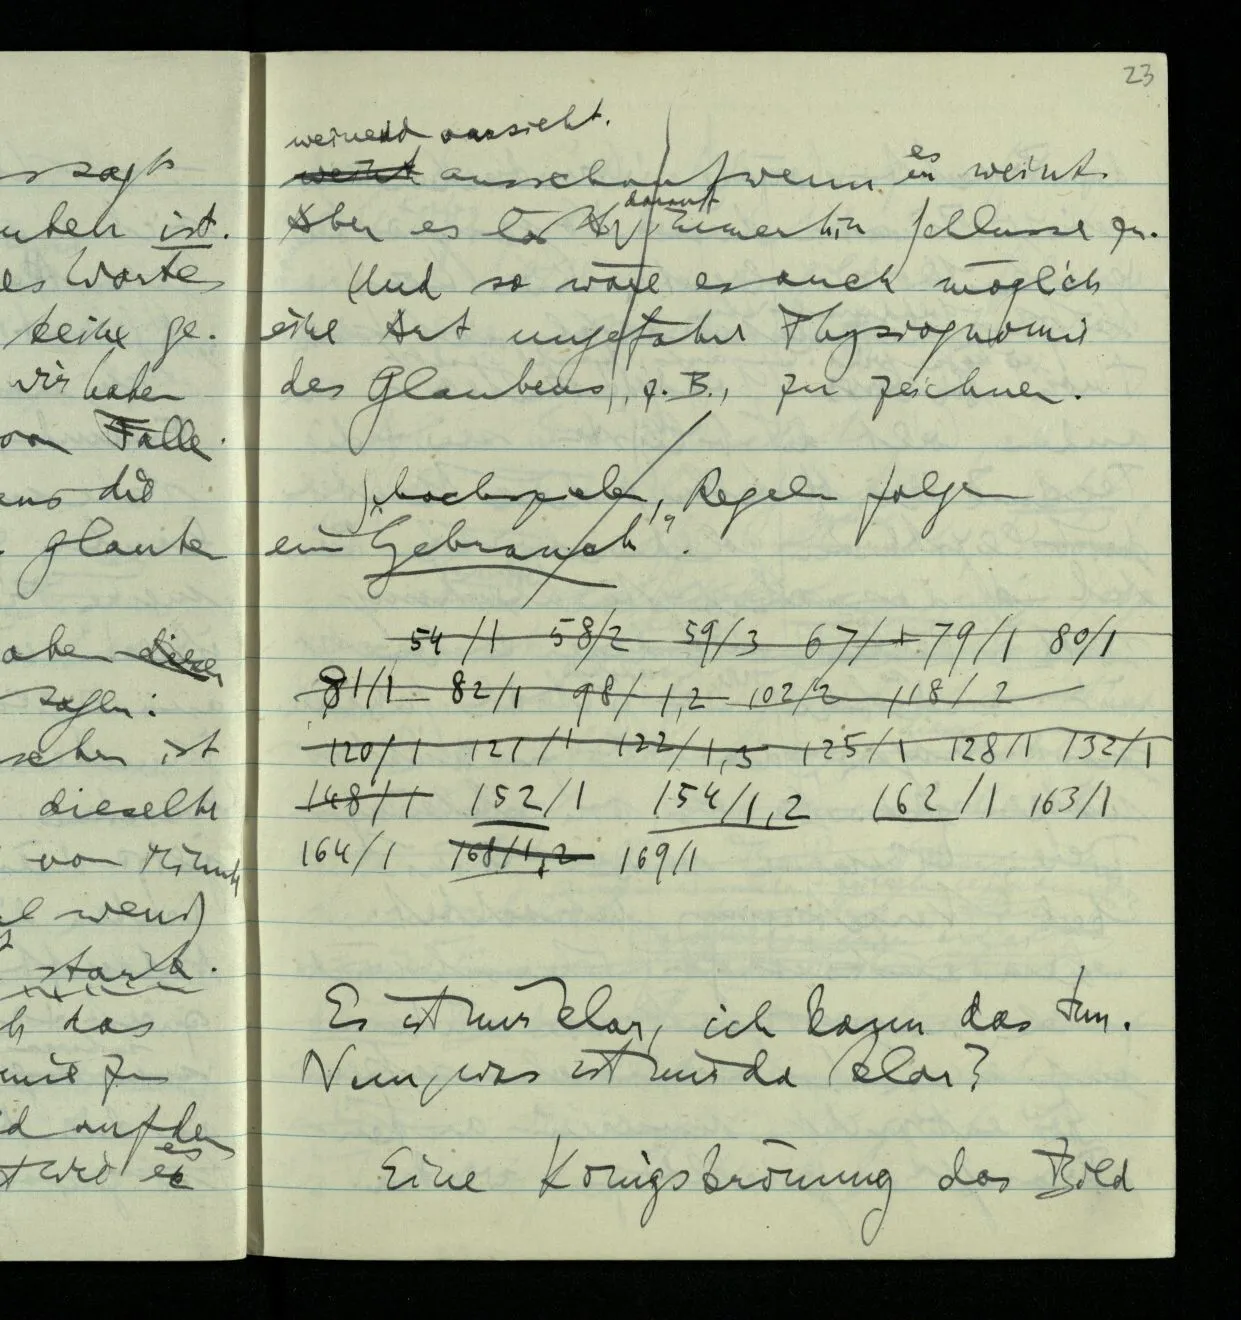 23
sagt
ist.
es Wortes
keine ge-
wir haben
Falle.
ens die
glauben
haben dieser
sagen:
ist
dieselbe
von
wenn
stark.
das
mit zu
auf den
es
weinend aussieht.
weint ausschaut wenn es weint.
darauf
Aber es läßt immerhin Schlüsse zu.
Und so wäre es auch möglich
eine Art ungefähre Physiognomie
des Glaubens, z.B., zu zeichnen.
Schachspielen, Regeln folgen
ein „Gebrauch“.
54/1 58/2 59/3 67/1 79/1 80/1
81/1 82/1 98/1,2 102/2 118/2
120/1 121/1 122/1,3 125/1 128/1 132/1
148/1 152/1 154/1,2 162/1 163/1
164/1 168/1,2 169/1
Es ist mir klar, ich kann das tun.
Nun, was ist mir da klar?
Eine Königskrönung das Bild